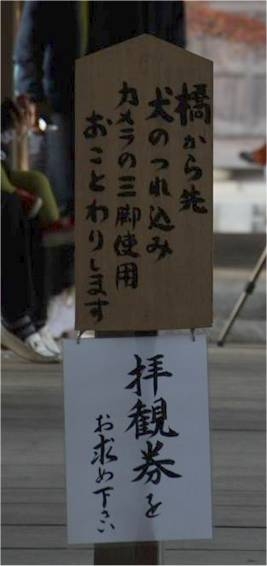 橋から先
犬のつれ込み
カメラの三脚使用
おことわりします
拝観券を
お求め下さい